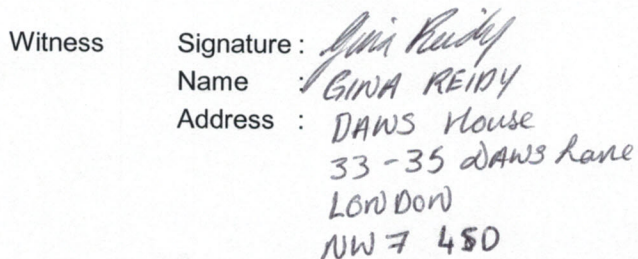 Witness Signature : Gina Reidy
Name : GINA REIDY
Address : DAWS House
33-35 DAWS Lane
LONDON
NW7 4SD